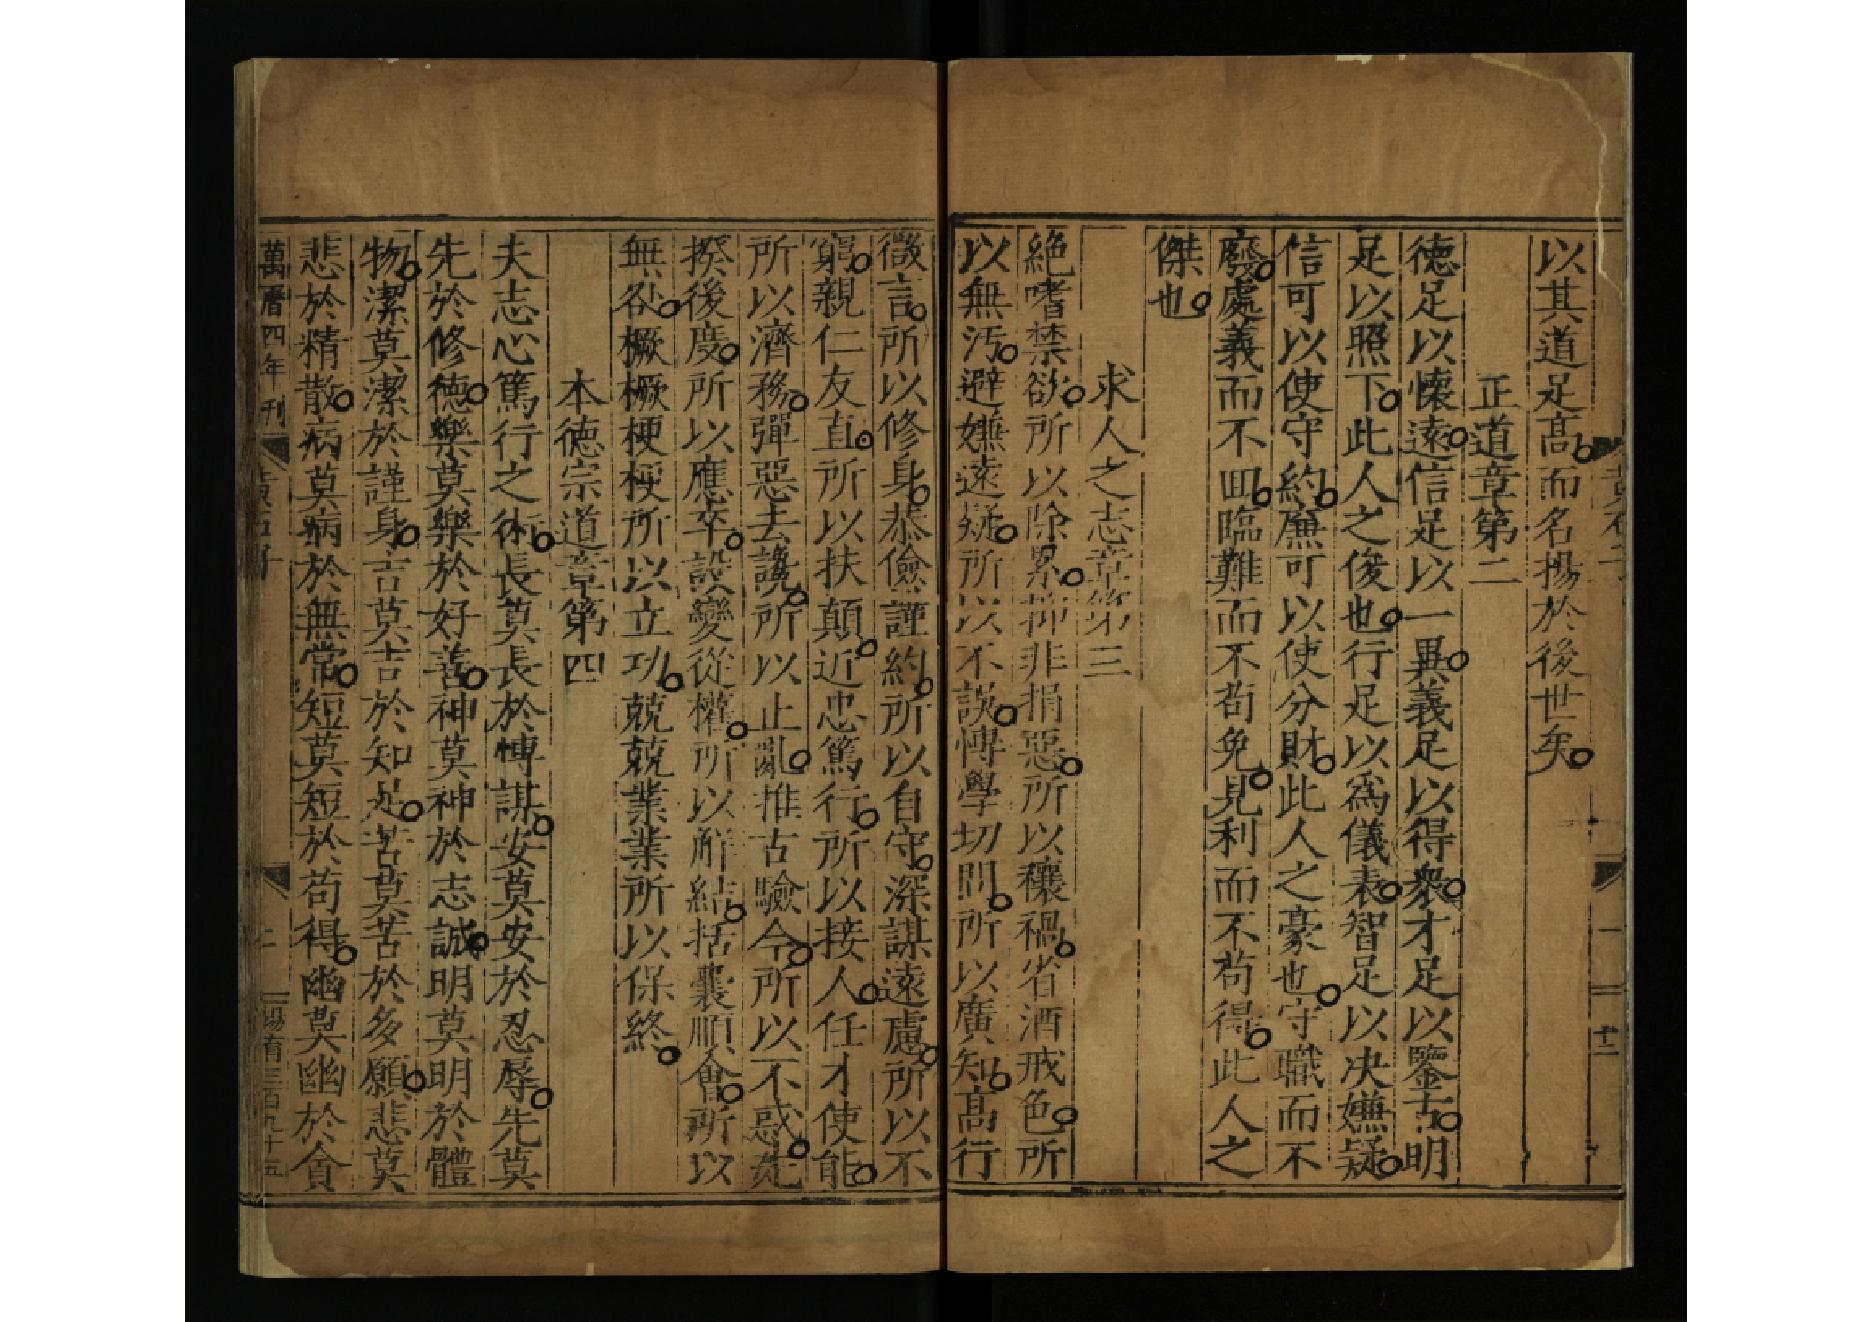 以其道足高而名揚於後世矣
正道章第二
德足以懷遠信足以一異義足以得衆才足以鑒古明
足以照下此人之俊也行足以爲儀表智足以决嫌疑
信可以使守約廉可以使分財此人之豪也守職而不
廢處義而不回臨難而不苟免見利而不苟得此人之
傑也
求人之志章第三
絶嗜禁欲所以除累抑非損惡所以穰禍省酒戒色所
以無汚避嫌遠疑所以不誤博學切問所以廣知高行
微言所以修身恭儉謹約所以自守深謀遠慮所以不
窮親仁友直所以扶顛近忠篤行所以接人任才使能
所以濟務彈惡去讒所以止亂推古驗今所以不惑先
揆後度所以應卒設變從權所以觧結括囊順會所以
無咎橛橛梗梗所以立功兢兢業業所以保終
本德宗道章第四
夫志心篤行之術長莫長於博謀安莫安於忍辱先莫
先於修德樂莫樂於好善神莫神於志誠明莫明於體
物潔莫潔於謹身吉莫吉於知足苦莫苦於多願悲莫
悲於精散病莫病於無常短莫短於苟得幽莫幽於貪
萬曆四年刊